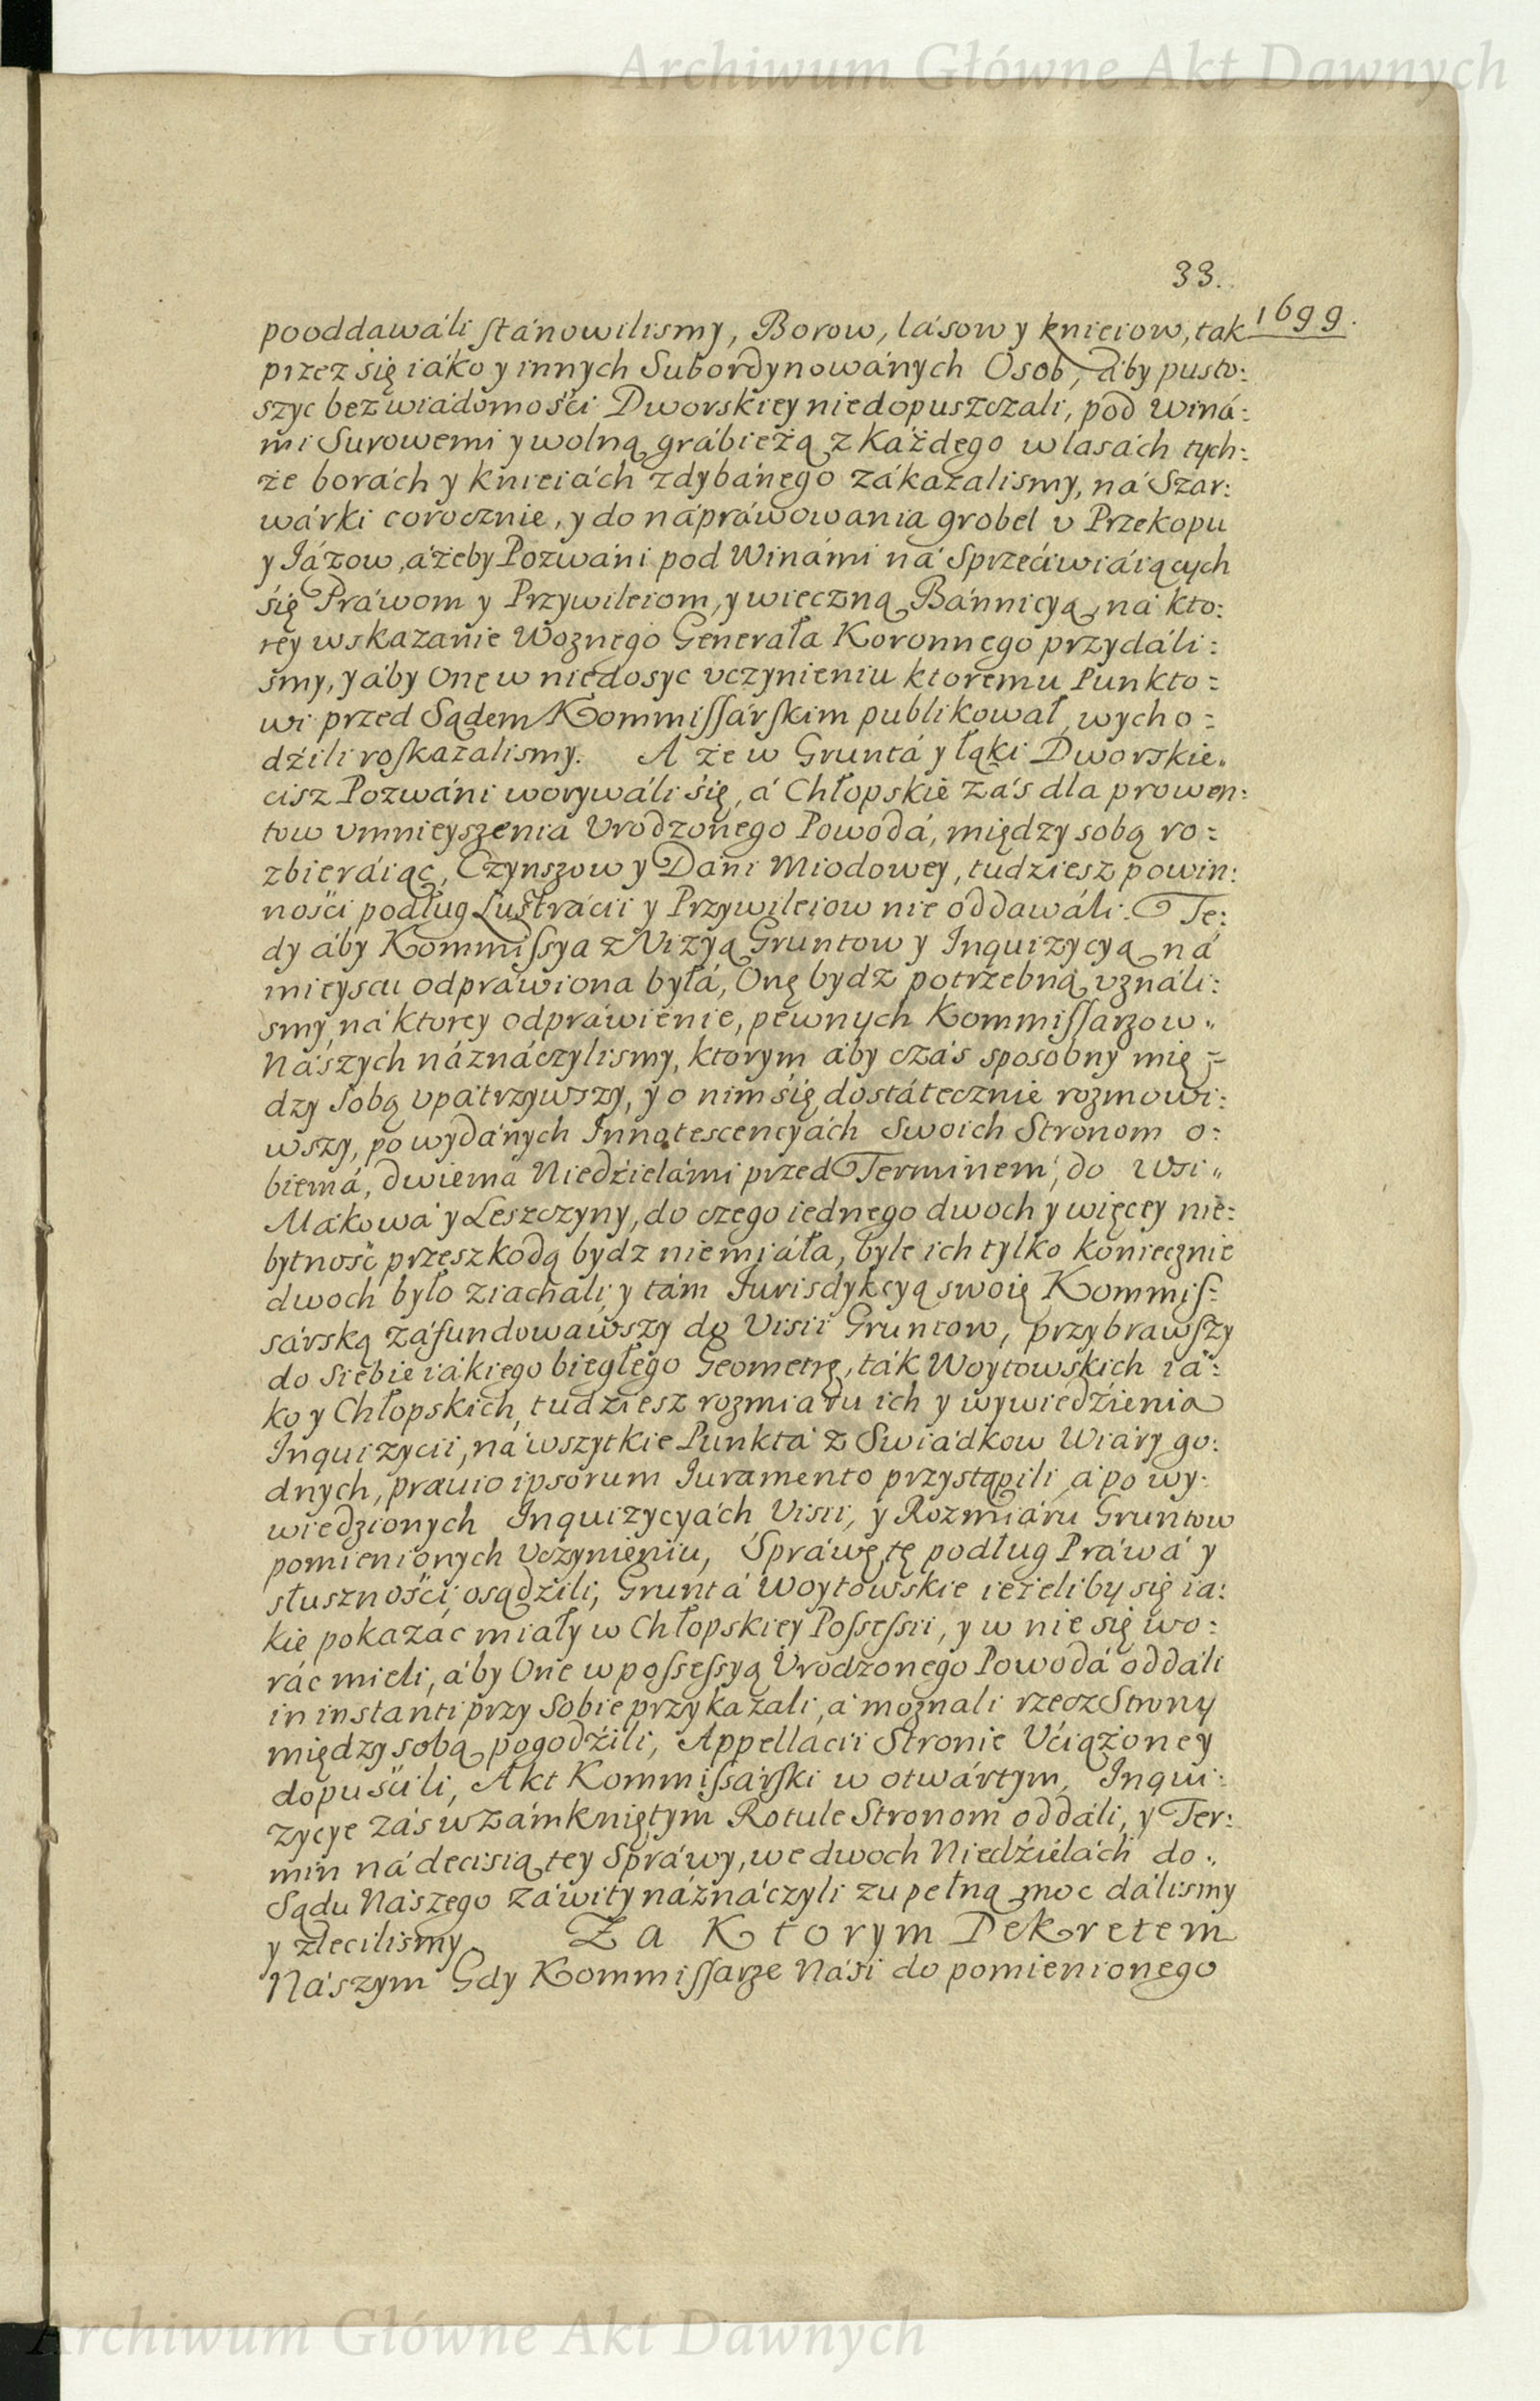 Archiwum Główne Akt Dawnych
33.
1699.
pooddawáli stánowilismy, Borow, lásow y knieiow, tak
przez się iáko y innych Subordynowánych Osob, áby pusto:
szyc bez wiádomości Dworskiey niedopuszczali, pod winá:
mi Surowemi y wolną grábieżą z káżdego w lasách tych:
że borách y knieiách zdybánego zákazalismy, ná Szar:
wárki corocznie, y do nápráwowania grobel v Przekopu
y Jázow, áżeby Pozwáni pod Winámi ná Sprzeciwiáiących
się Práwom y Przywileiom, y wieczną Bánnicyą, ná kto:
rey wskazánie Woznego Generała Koronnego przydáli:
smy, y áby Onę w niedosyc vczynieniu ktoremu Punkto:
wi przed Sądem Kommissárskim publikował, wycho:
dźili roskazalismy. A że w Gruntá y łąki Dworskie
cisz Pozwáni worywáli się, á Chłopskie zás dla prowen:
tow vmnieyszenia Vrodzonego Powodá, między sobą ro:
zbieráiąc, Czynszow y Dáni Miodowey, tudziesz powin:
ności podług Lustrácii y Przywileiow nie oddawáli. Te:
dy áby Kommissya z Vizyą Gruntow y Inquizycyą ná
mieyscu odpráwiona byłá, Onę bydz potrzebną vználi:
smy, ná ktorey odpráwienie, pewnych Kommissarzow
Nászych náznáczylismy, ktorym áby czás sposobny mię:
dzy sobą vpátrzywszy, y o nim się dostátecznie rozmowi:
wszy, po wydánych Innotescencyách Swoich Stronom o:
biemá, dwiema Niedźielámi przed Terminem, do Wsi
Mákowá y Leszczyny, do czego iednego dwoch y więcey nie:
bytność przeszkodą bydz niemiáła, byle ich tylko koniecznie
dwoch było ziachali, y tám Jurisdykcyą swoię Kommis:
sárską záfundowawszy do Visii Gruntow, przybrawszy
do siebie iákiego biegłego Geometrę, ták Woytowskich iá:
ko y Chłopskich, tudziesz rozmiaru ich y wywiedźienia
Inquizycii, ná wszytkie Punktá z Swiádkow Wiáry go:
dnych, prauio ipsorum Iuramento przystąpili, á po wy:
wiedzionych Inquizycyách Visii, y Rozmiáru Gruntow
pomienionych Vczynieniu, Spráwę tę podług Práwá y
słuszności, osądźili, Gruntá Woytowskie ieżeliby się ia:
kie pokazac miały w Chłopskiey Possessii, y w nie się wo:
rác mieli, áby One w possessyą Vrodzonego Powodá oddáli
in instanti przy Sobie przykazali, á moznali rzecz Strony
między sobą pogodźili, Appellácii Stronie Vciążoney
dopuścili, Akt Kommissárski w otwártym, Inqui:
zycye zás w zámkniętym Rotule Stronom oddáli, y Ter:
min ná decisią tey Spráwy, we dwoch Niedźielách do
Sądu Nászego záwity náznáczyli zupełną moc dálismy
y zlecilismy. Za Ktorym Dekretem
Nászym Gdy Kommissarze Nási do pomienionego
Archiwum Główne Akt Dawnych